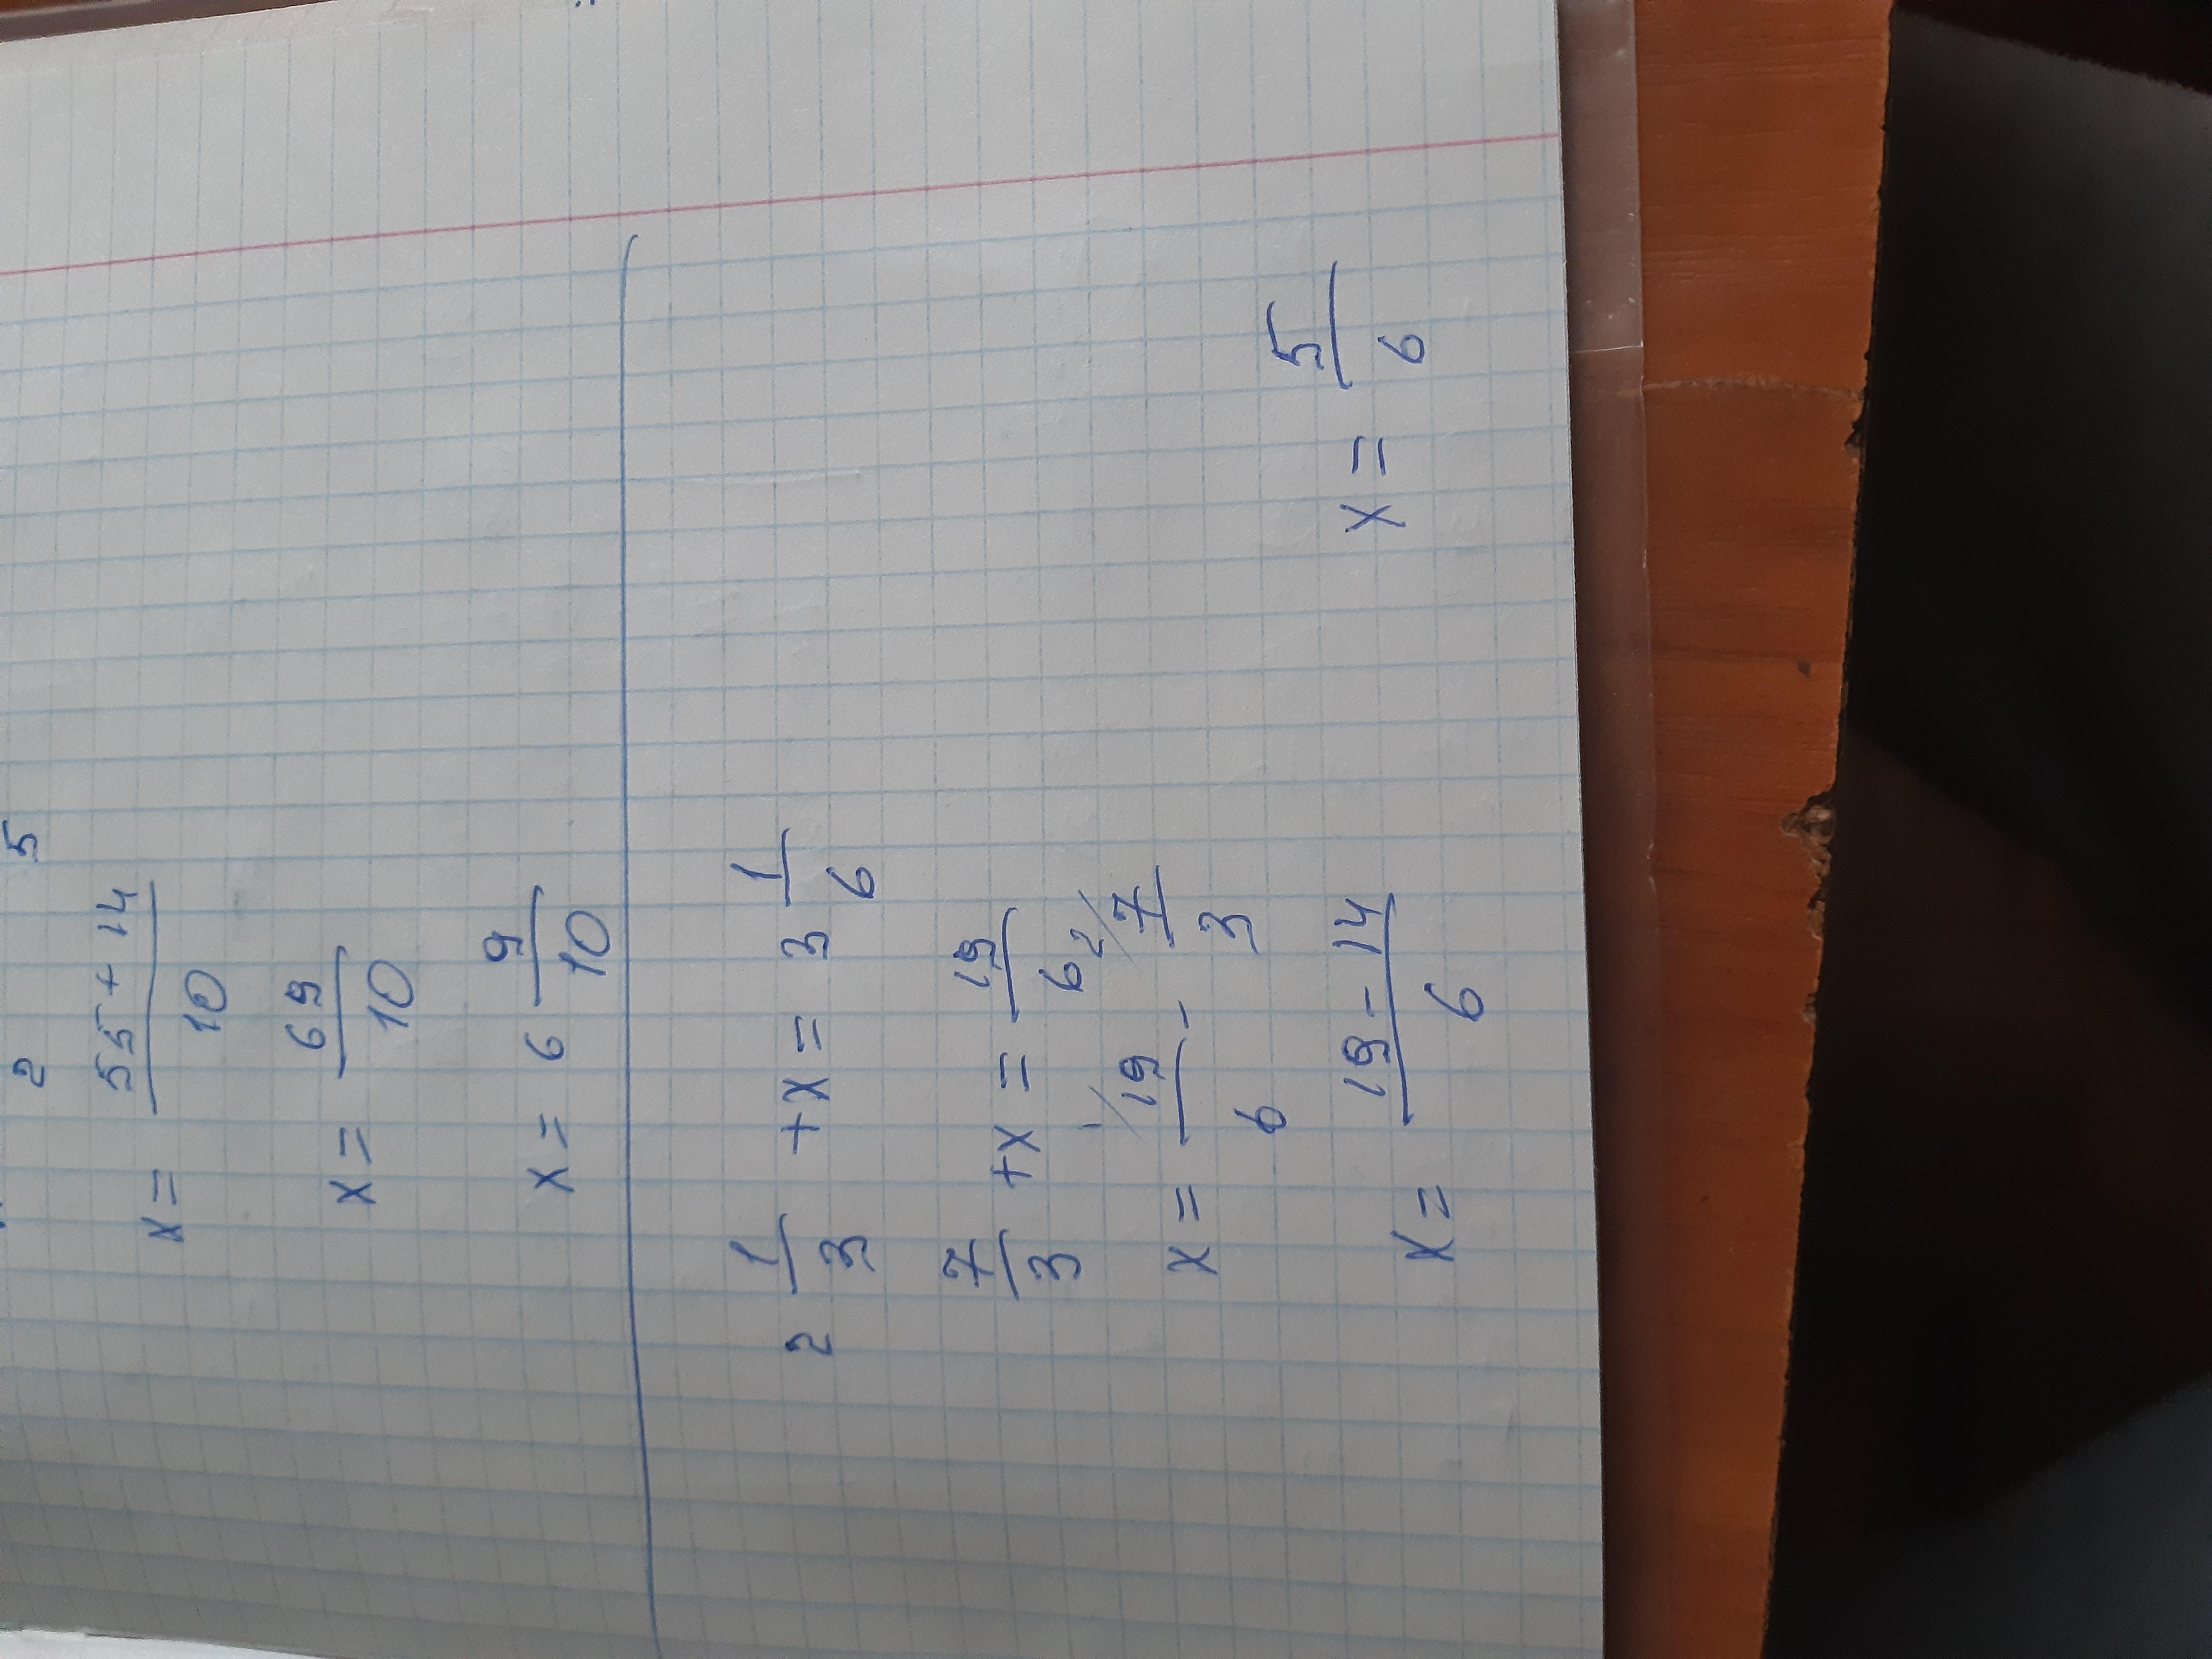 2 5
x = 55+14/10
x = 69/10
x = 6 9/10
2 1/3 + x = 3 1/6
7/3 + x = 19/6
x = 1/ 19/6 - 2/ 7/3
x = 19-14/6
x = 5/6